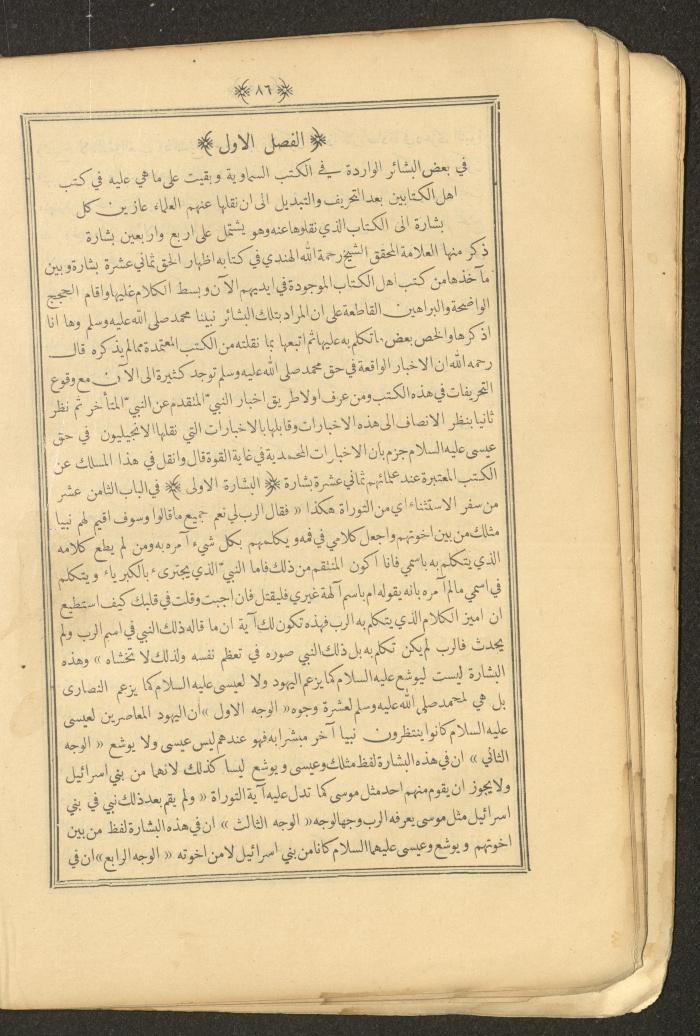 ٨٦
الفصل الاول
في بعض البشائر الواردة في الكتب السماوية وبقيت على ما هي عليه في كتب
اهل الكتابين بعد التحريف والتبديل الى ان نقلها عنهم العلماء عازين كل
بشارة الى الكتاب الذي نقلوها عنه وهو يشتمل على اربع واربعين بشارة
ذكر منها العلامة المحقق الشيخ رحمة الله الهندي في كتابه اظهار الحق ثماني عشرة بشارة وبين
مآخذها من كتب اهل الكتاب الموجودة في ايديهم الآن وبسط الكلام عليها واقام الحجج
الواضحة والبراهين القاطعة على ان المراد بتلك البشائر نبينا محمد صلى الله عليه وسلم وها انا
اذكرها والخص بعض ما تكلم به عليها ثم اتبعها بما نقلته من الكتب المعتمدة مما لم يذكره قال
رحمه الله ان الاخبار الواقعة في حق محمد صلى الله عليه وسلم توجد كثيرة الى الآن مع وقوع
التحريفات في هذه الكتب ومن عرف اولا طريق اخبار النبيّ المتقدم عن النبيّ المتأخر ثم نظر
ثانيا بنظر الانصاف الى هذه الاخبارات وقابلها بالاخبارات التي نقلها الانجيليون في حق
عيسى عليه السلام جزم بان الاخبارات المحمدية في غاية القوة قال وانقل في هذا المسلك عن
الكتب المعتبرة عند علمائهم ثماني عشرة بشارة ﴿ البشارة الاولى ﴾ في الباب الثامن عشر
من سفر الاستثناء اي من التوراة هكذا « فقال الرب لي نعم جميع ما قالوا وسوف اقيم لهم نبيا
مثلك من بين اخوتهم واجعل كلامي في فمه ويكلمهم بكل شيء آمره به ومن لم يطع كلامه
الذي يتكلم به باسمي فانا اكون المنتقم من ذلك فاما النبيّ الذي يجترىء بالكبرياء ويتكلم
في اسمي ما لم آمره بانه يقوله ام باسم آلهة غيري فليقتل فان اجبت وقلت في قلبك كيف استطيع
ان اميز الكلام الذي يتكلم به الرب فهذه تكون لك آية ان ما قاله ذلك النبي في اسم الرب ولم
يحدث فالرب لم يكن تكلم به بل ذلك النبي صوره في تعظم نفسه ولذلك لا تخشاه » وهذه
البشارة ليست ليوشع عليه السلام كما يزعم اليهود ولا لعيسى عليه السلام كما يزعم النصارى
بل هي لمحمد صلى الله عليه وسلم لعشرة وجوه « الوجه الاول » ان اليهود المعاصرين لعيسى
عليه السلام كانوا ينتظرون نبيا آخر مبشرا به فهو عندهم ليس عيسى ولا يوشع « الوجه
الثاني » ان في هذه البشارة لفظ مثلك وعيسى ويوشع ليسا كذلك لانهما من بني اسرائيل
ولا يجوز ان يقوم منهم احد مثل موسى كما تدل عليه آية التوراة « ولم يقم بعد ذلك نبي في بني
اسرائيل مثل موسى يعرفه الرب وجها لوجه « الوجه الثالث » ان في هذه البشارة لفظ من بين
اخوتهم ويوشع وعيسى عليهما السلام كانا من بني اسرائيل لا من اخوته « الوجه الرابع » ان في